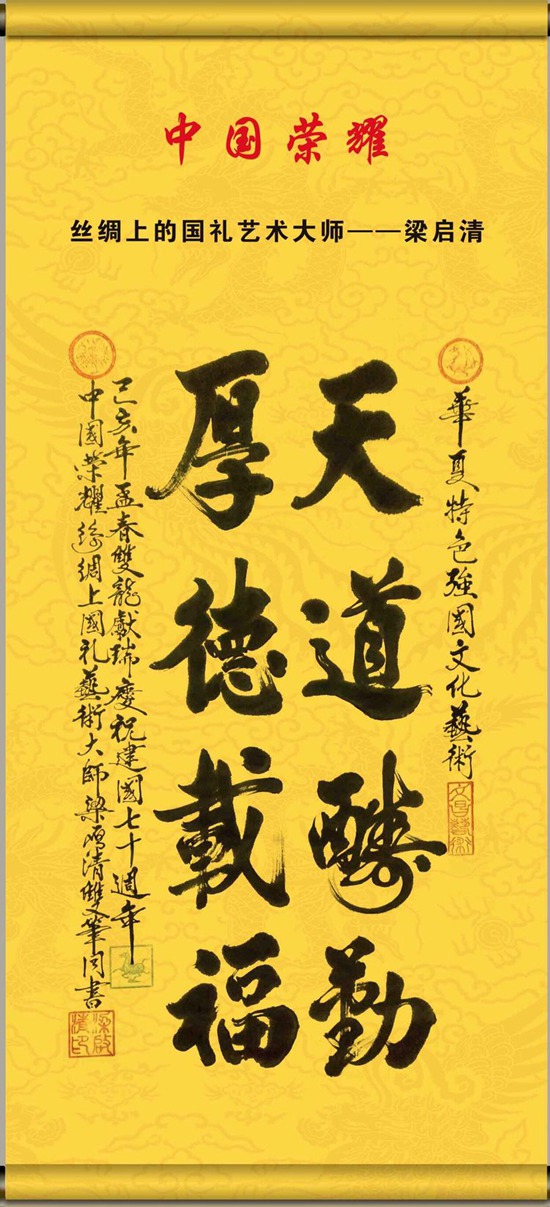 中国荣耀
丝绸上的国礼艺术大师——梁启清
華夏特色強國文化藝術
天道酬勤
厚德載福
己亥年孟春雙龍獻瑞慶祝建國七十週年
中國榮耀絲綢上國礼藝術大師梁啟清雙筆同書